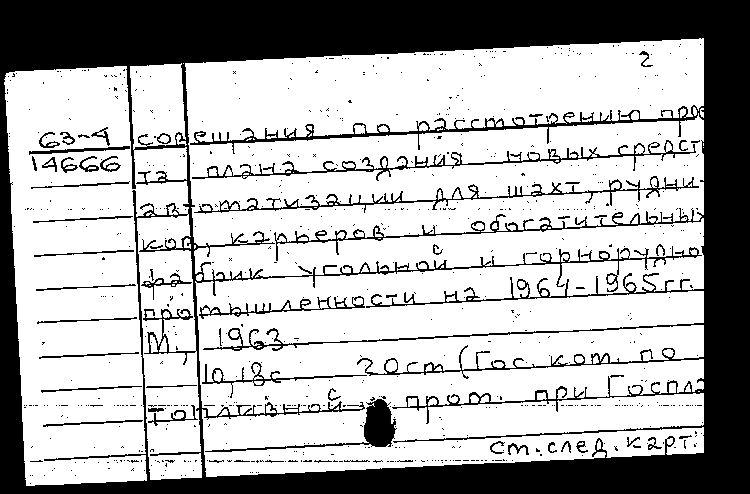 2
63-4 совещания по рассмотрению прое
14666 та плана создания новых средст
автоматизации для шахт, рудни-
ков, карьеров и обогатительны
фабрик угольной и горнорудно
промышленности на 1964-1965гг.
М., 1963.
10,18с 20cm (Гос. ком. по
топливной пром. при Госпла
см.след.карт.